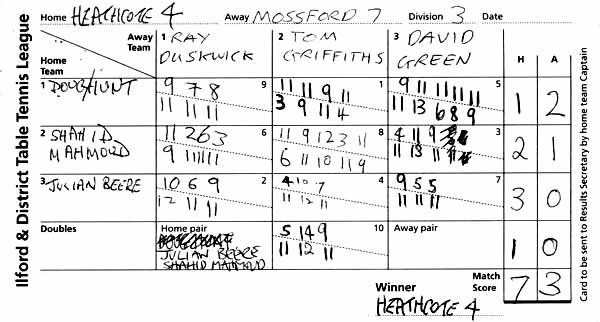 Ilford & District Table Tennis League
Home HEATHCOTE 4 Away MOSSFORD 7 Division 3 Date
Away Team
Home Team
1 RAY DUSKWICK
2 TOM GRIFFITHS
3 DAVID GREEN
H A
1 DOUG HUNT
9 7 8 9
11 11 11
11 11 9 11 1
3 9 11 4
9 11 11 11 11 11 5
11 13 6 8 9
1 2
2 SHAHID MAHMOUD
11 2 6 3 6
9 11 11 11
11 9 12 3 11 8
6 11 10 11 9
4 11 9 3
11 13 11
2 1
3 JULIAN BEERE
10 6 9 2
12 11 11
4 10 7 4
11 12 11
9 5 5 7
11 11 11
3 0
Doubles
Home pair
JULIAN BEERE
SHAHID MAHMOUD
5 14 9 10
11 12 11
Away pair
1 0
Winner
HEATHCOTE 4
Match Score
7 3
Card to be sent to Results Secretary by home team Captain